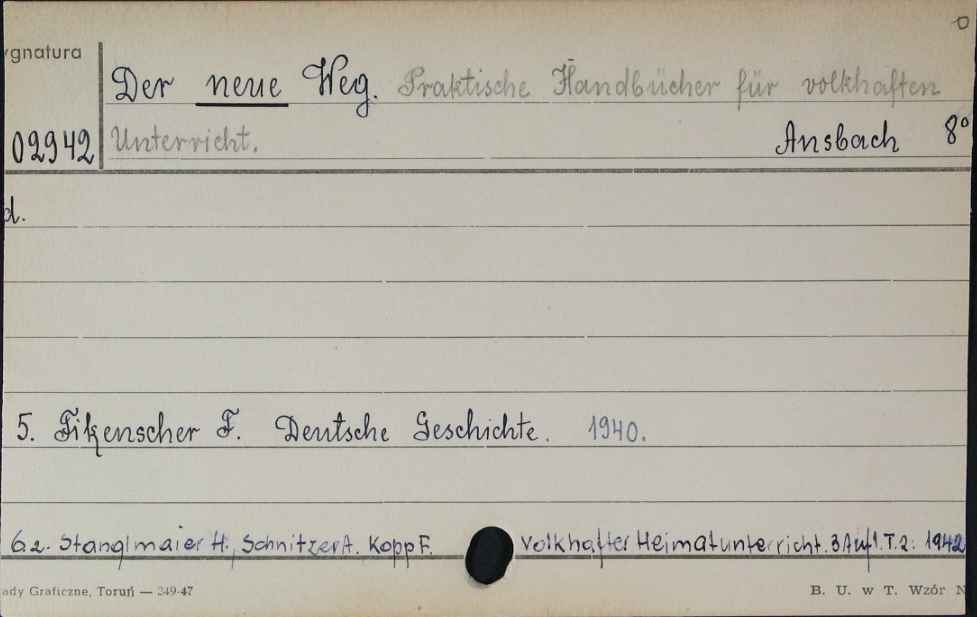 ygnatura
Der neue Weg. Praktische Handbücher für volkhaften
02942 Unterricht. Ansbach 8°
d.
5. Fikenscher F. Deutsche Geschichte. 1940.
6.2. Stanglmaier H., Schnitzer A. Kopp F. Volkhafter Heimatunterricht. 3 Aufl. T. 2: 1942
ady Graficzne, Toruń — 249-47 B. U. w T. Wzór N